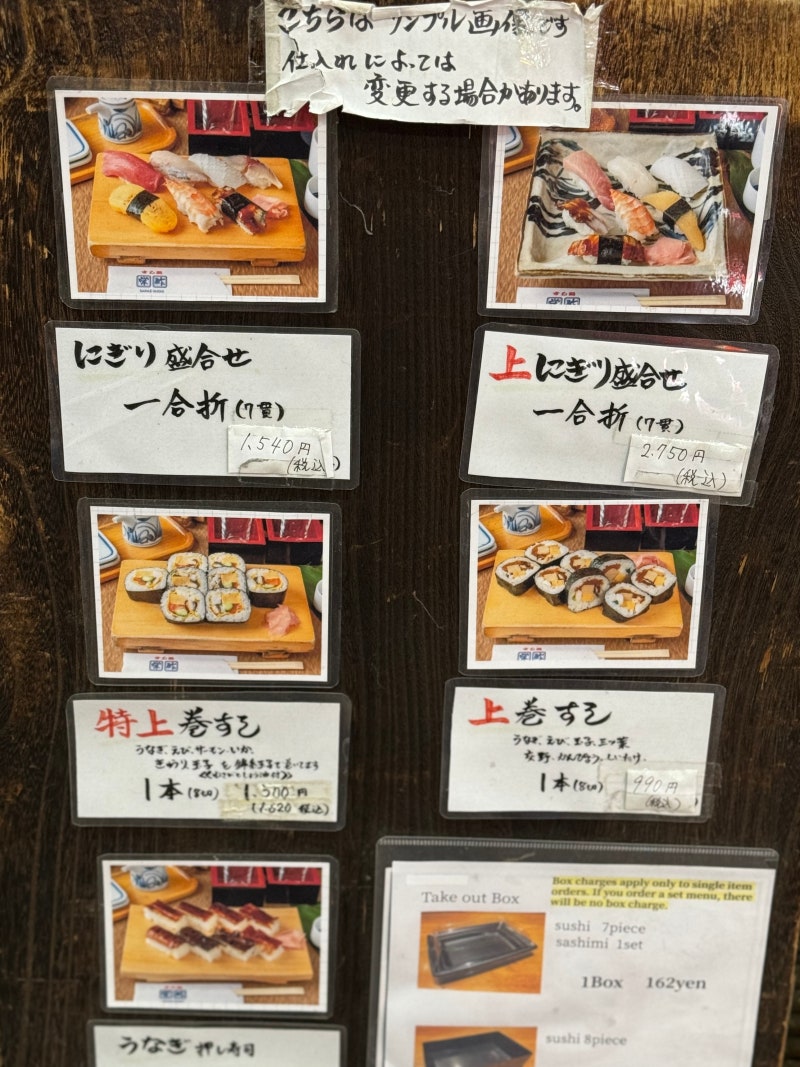 こちらは サンプル画像です
仕入れによっては
変更する場合があります。
にぎり盛合せ
一合折(7貫)
1,540円
(税込)
上にぎり盛合せ
一合折(7貫)
2.750円
(税込)
特上巻すし
うなぎ、えび、サーモン、いか、
きゅうり、玉子を錦糸玉子で巻いてます
1本(8切) 1,500円
(1,620税込)
上巻すし
うなぎ、えび、玉子、三ツ葉
かんぴょう、しいたけ、
1本(8切)
990円
(税込)
うなぎ 押し寿司
Take out Box
Box charges apply only to single item
orders. If you order a set menu, there
will be no box charge.
sushi 7piece
sashimi 1set
1Box 162yen
sushi 8piece